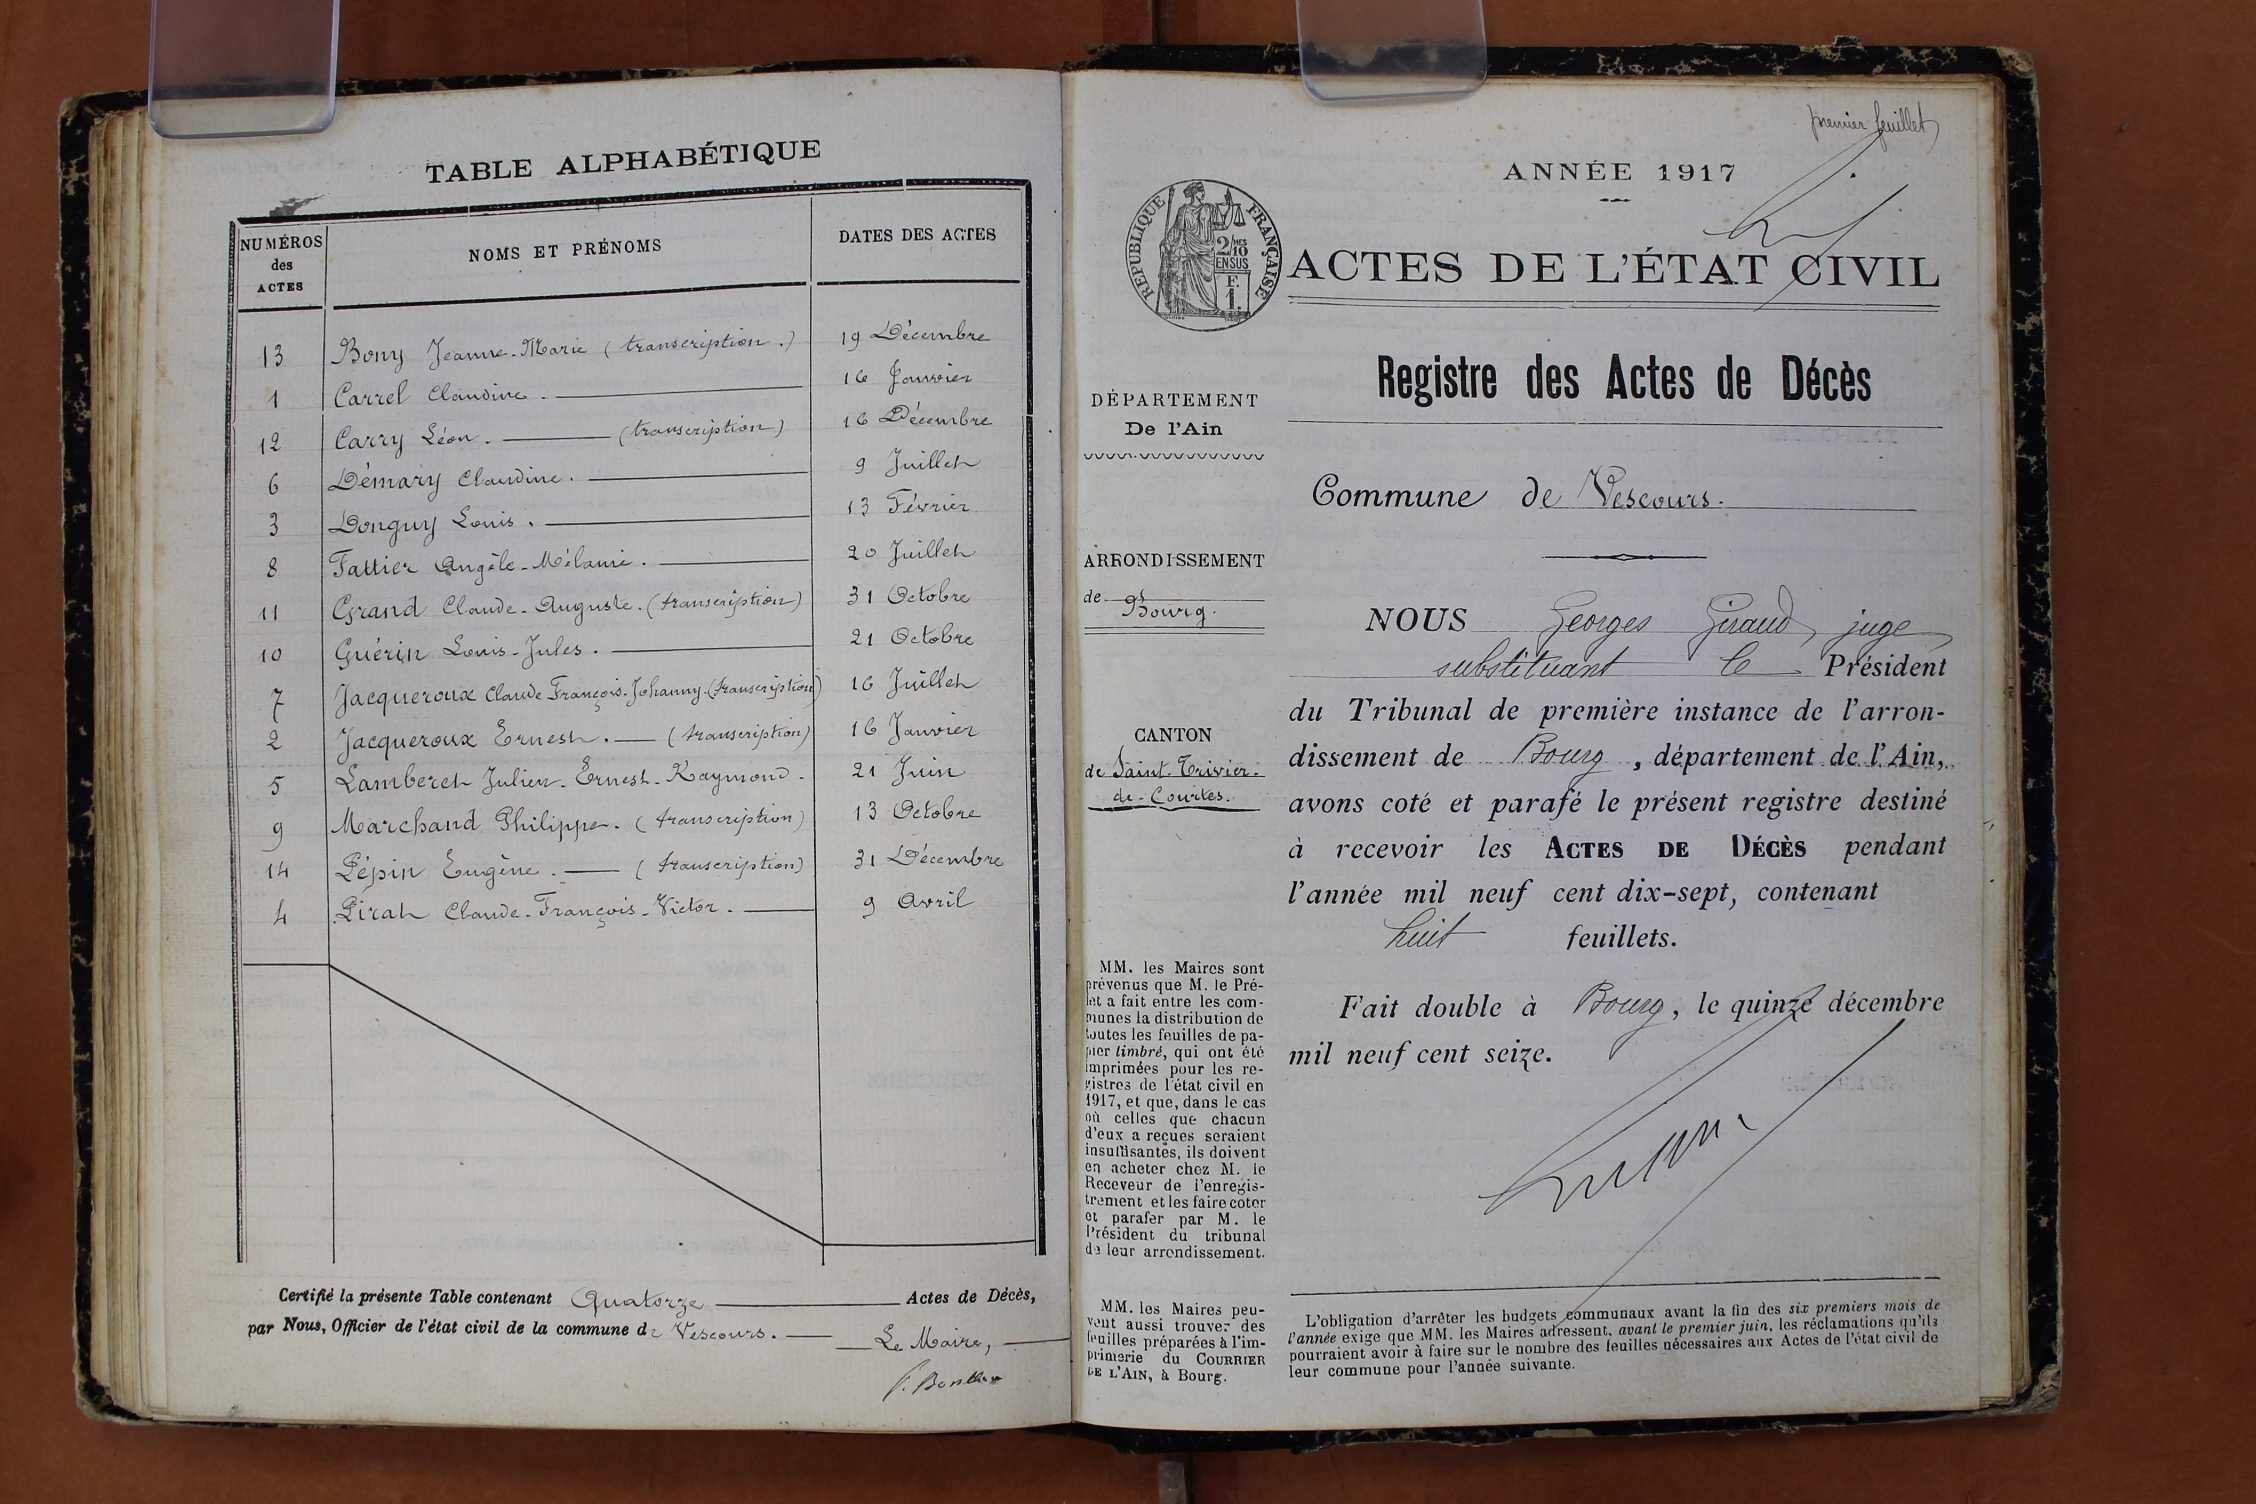 TABLE ALPHABÉTIQUE
NUMÉROS des ACTES
NOMS ET PRÉNOMS
DATES DES ACTES
13 Bony Jeanne-Marie (transcription.) 19 Décembre
1 Carrel Claudine. 16 Janvier
12 Carry Léon. (transcription) 16 Décembre
6 Démary Claudine. 9 Juillet
3 Donguy Louis. 13 Février
8 Fattier Angèle-Mélanie. 20 Juillet
11 Grand Claude-Auguste. (transcription) 31 Octobre
10 Guérin Louis-Jules. 21 Octobre
7 Jacqueroux Claude François-Johanny (transcription) 16 Juillet
2 Jacqueroux Ernest. (transcription) 16 Janvier
5 Lamberet Julien-Ernest-Raymond. 21 Juin
9 Marchand Philippe. (transcription) 13 Octobre
14 Pépin Eugène. (transcription) 31 Décembre
4 Pirat Claude-François-Victor. 9 Avril
Certifié la présente Table contenant Quatorze Actes de Décès,
par Nous, Officier de l'état civil de la commune de Vescours.
Le Maire,
premier feuillet
ANNÉE 1917
RÉPUBLIQUE FRANÇAISE
2/10
EN SUS
F.
1.
ACTES DE L'ÉTAT CIVIL
Registre des Actes de Décès
DÉPARTEMENT
De l'Ain
Commune de Vescours.
ARRONDISSEMENT
de Bourg.
CANTON
de Saint-Trivier-
de-Courtes.
NOUS Georges Giraud, juge
substituant le Président
du Tribunal de première instance de l'arron-
dissement de Bourg, département de l'Ain,
avons coté et parafé le présent registre destiné
à recevoir les ACTES DE DÉCÈS pendant
l'année mil neuf cent dix-sept, contenant
huit feuillets.
Fait double à Bourg, le quinze décembre
mil neuf cent seize.
MM. les Maires sont
prévenus que M. le Pré-
fet a fait entre les com-
munes la distribution de
toutes les feuilles de pa-
pier timbré, qui ont été
imprimées pour les re-
gistres de l'état civil en
1917, et que, dans le cas
où celles que chacun
d'eux a reçues seraient
insuffisantes, ils doivent
en acheter chez M. le
Receveur de l'enregis-
trement et les faire coter
et parafer par M. le
Président du tribunal
de leur arrondissement.
MM. les Maires peu-
vent aussi trouver des
feuilles préparées à l'im-
primerie du COURRIER
DE L'AIN, à Bourg.
L'obligation d'arrêter les budgets communaux avant la fin des six premiers mois de
l'année exige que MM. les Maires adressent, avant le premier juin, les réclamations qu'ils
pourraient avoir à faire sur le nombre des feuilles nécessaires aux Actes de l'état civil de
leur commune pour l'année suivante.